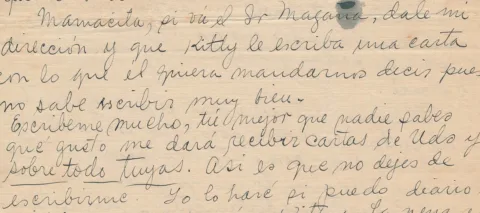 Mamacita, si va el Sr Magaña, dale mi
dirección y que Kitty le escriba una carta
con lo que el quiera mandarnos decir pues
no sabe escribir muy bien.
Escribeme mucho, tú mejor que nadie sabes
que gusto me dará recibir cartas de Uds y
sobre todo tuyas. Asi es que no dejes de
escribirme. Yo lo haré si puedo diario